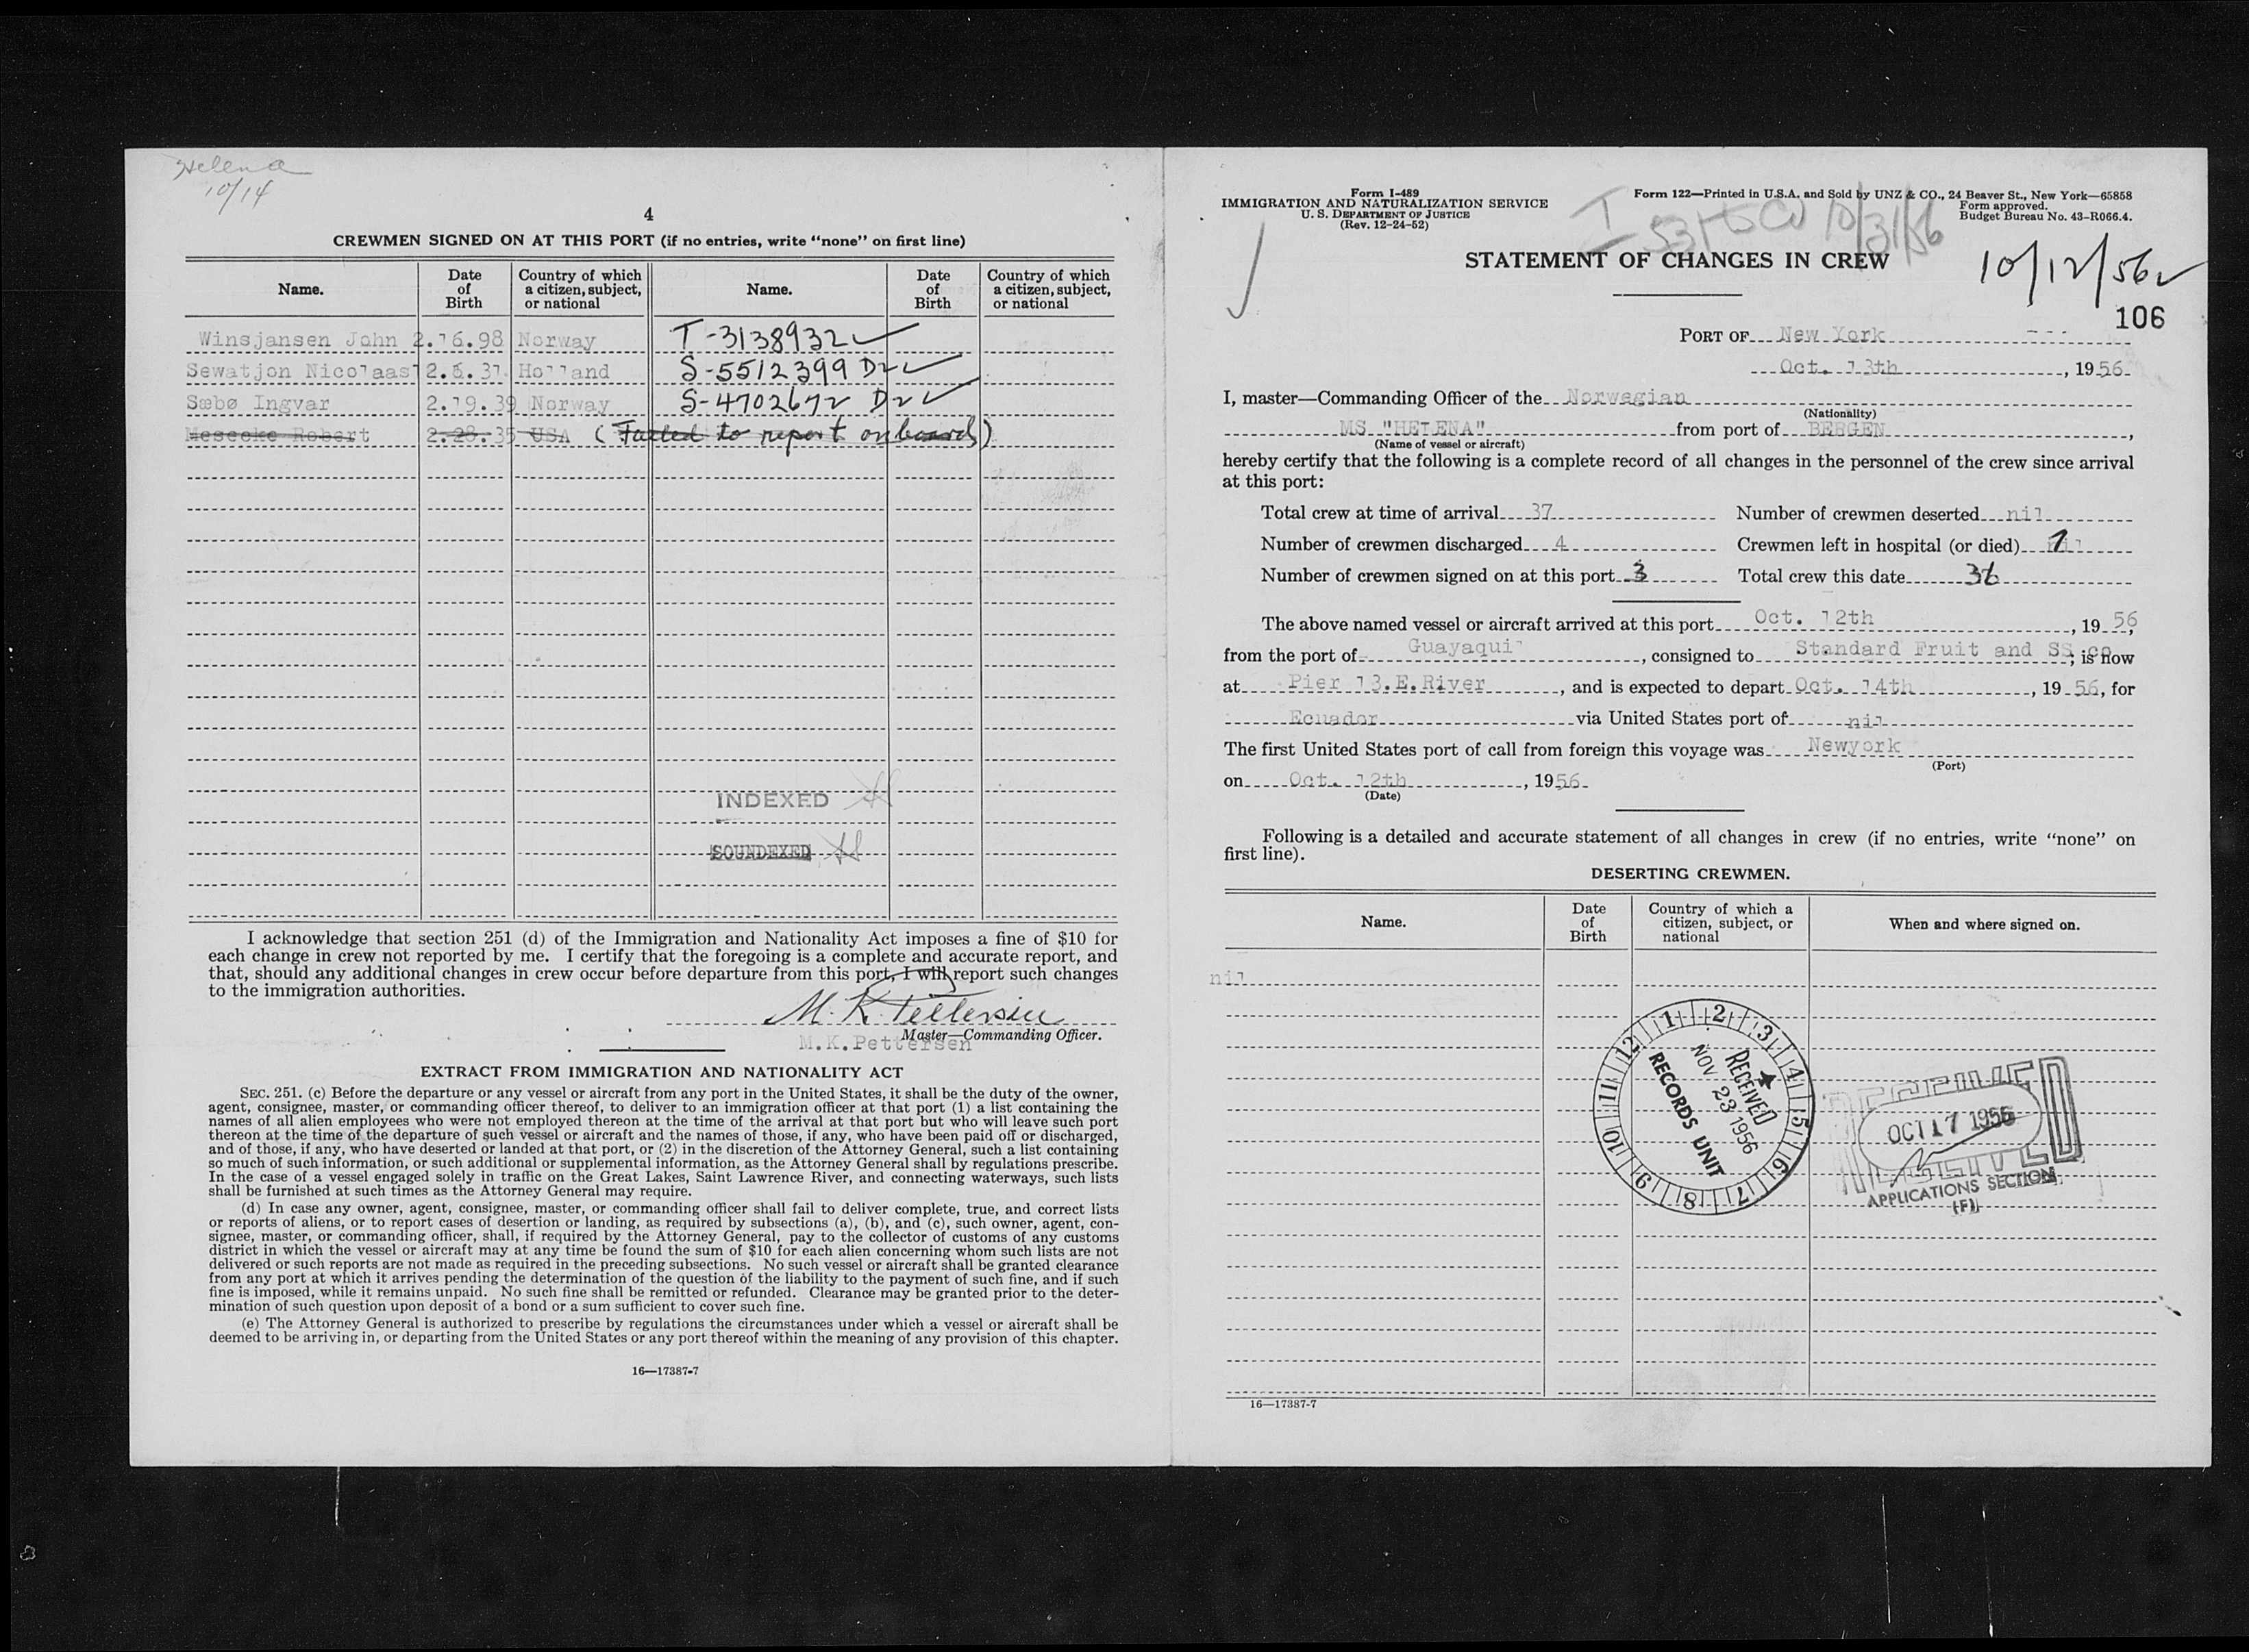 Helena
10/14
4
CREWMEN SIGNED ON AT THIS PORT (if no entries, write “none” on first line)
Name. Date of Birth Country of which a citizen, subject, or national Name. Date of Birth Country of which a citizen, subject, or national
Winsjansen John 2.16.98 Norway T-3138932 ✓
Sewatjon Nicolaas 2.6.31 Holland S-5512399 D2 ✓
Sæbø Ingvar 2.19.39 Norway S-4702672 D2 ✓
Meseeke Robert 2.28.35 USA (Failed to report onboard)
INDEXED
SOUNDEXED
I acknowledge that section 251 (d) of the Immigration and Nationality Act imposes a fine of $10 for
each change in crew not reported by me. I certify that the foregoing is a complete and accurate report, and
that, should any additional changes in crew occur before departure from this port, I will report such changes
to the immigration authorities.
M. K. Pettersen
Master—Commanding Officer.
M.K.Pettersen
EXTRACT FROM IMMIGRATION AND NATIONALITY ACT
SEC. 251. (c) Before the departure or any vessel or aircraft from any port in the United States, it shall be the duty of the owner,
agent, consignee, master, or commanding officer thereof, to deliver to an immigration officer at that port (1) a list containing the
names of all alien employees who were not employed thereon at the time of the arrival at that port but who will leave such port
thereon at the time of the departure of such vessel or aircraft and the names of those, if any, who have been paid off or discharged,
and of those, if any, who have deserted or landed at that port, or (2) in the discretion of the Attorney General, such a list containing
so much of such information, or such additional or supplemental information, as the Attorney General shall by regulations prescribe.
In the case of a vessel engaged solely in traffic on the Great Lakes, Saint Lawrence River, and connecting waterways, such lists
shall be furnished at such times as the Attorney General may require.
(d) In case any owner, agent, consignee, master, or commanding officer shall fail to deliver complete, true, and correct lists
or reports of aliens, or to report cases of desertion or landing, as required by subsections (a), (b), and (c), such owner, agent, con-
signee, master, or commanding officer, shall, if required by the Attorney General, pay to the collector of customs of any customs
district in which the vessel or aircraft may at any time be found the sum of $10 for each alien concerning whom such lists are not
delivered or such reports are not made as required in the preceding subsections. No such vessel or aircraft shall be granted clearance
from any port at which it arrives pending the determination of the question of the liability to the payment of such fine, and if such
fine is imposed, while it remains unpaid. No such fine shall be remitted or refunded. Clearance may be granted prior to the deter-
mination of such question upon deposit of a bond or a sum sufficient to cover such fine.
(e) The Attorney General is authorized to prescribe by regulations the circumstances under which a vessel or aircraft shall be
deemed to be arriving in, or departing from the United States or any port thereof within the meaning of any provision of this chapter.
16—17387-7
Form I-489
IMMIGRATION AND NATURALIZATION SERVICE
U. S. DEPARTMENT OF JUSTICE
(Rev. 12-24-52)
Form 122—Printed in U.S.A. and Sold by UNZ & CO., 24 Beaver St., New York—65858
Form approved.
Budget Bureau No. 43-R066.4.
10/31/56
STATEMENT OF CHANGES IN CREW
10/12/56 ✓
106
PORT OF New York
Oct. 13th, 1956
I, master—Commanding Officer of the Norwegian
(Nationality)
MS "HELENA" from port of BERGEN,
(Name of vessel or aircraft)
hereby certify that the following is a complete record of all changes in the personnel of the crew since arrival
at this port:
Total crew at time of arrival 37 Number of crewmen deserted nil
Number of crewmen discharged 4 Crewmen left in hospital (or died) 1
Number of crewmen signed on at this port 3 Total crew this date 36
The above named vessel or aircraft arrived at this port Oct. 12th, 1956,
from the port of Guayaquil, consigned to Standard Fruit and SS co; is now
at Pier 13.E.River, and is expected to depart Oct. 14th, 1956, for
Ecuador via United States port of nil
The first United States port of call from foreign this voyage was Newyork
(Port)
on Oct. 12th, 1956
(Date)
Following is a detailed and accurate statement of all changes in crew (if no entries, write “none” on
first line).
DESERTING CREWMEN.
Name. Date of Birth Country of which a citizen, subject, or national When and where signed on.
nil
1 2 3 4 5 6 7 8 9 10 11 12
RECEIVED
NOV 23 1956
RECORDS UNIT
RECEIVED
OCT 17 1956
APPLICATIONS SECTION
(F)
16—17387-7